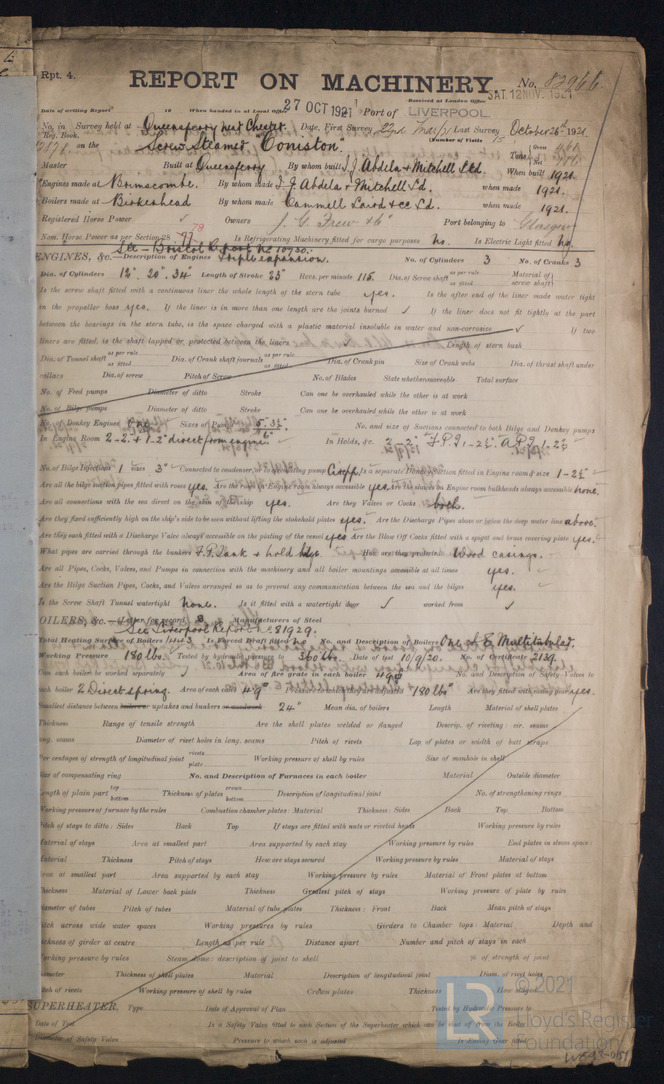 Rpt. 4.
REPORT ON MACHINERY.
No. 82966
SAT. 12 NOV. 1921
Date of writing Report 19 When handed in at Local Office 27 OCT 1921 Port of LIVERPOOL
Received at London Office
No. in Reg. Book. Survey held at Queensferry near Chester. Date, First Survey 22nd Last Survey October 26th 1921.
(Number of Visits 15
on the Screw Steamer Coniston. Tons Gross Net
Master Built at Queensferry By whom built I. J. Abdela & Mitchell Ltd. When built 1921.
Engines made at Brimscombe. By whom made I. J. Abdela & Mitchell Ld. when made 1921.
Boilers made at Birkenhead By whom made Cammell Laird & Co Ld. when made 1921.
Registered Horse Power ✓ Owners Port belonging to Glasgow
Nom. Horse Power as per Section 28 77 78 Is Refrigerating Machinery fitted for cargo purposes No. Is Electric Light fitted No
See Bristol Report No 10730.
ENGINES, &c.—Description of Engines Triple expansion. No. of Cylinders 3 No. of Cranks 3
Dia. of Cylinders 20" 34" Length of Stroke 23" Revs. per minute 115. Dia. of Screw shaft as per rule as fitted Material of screw shaft
Is the screw shaft fitted with a continuous liner the whole length of the stern tube yes. Is the after end of the liner made water tight
in the propeller boss yes. If the liner is in more than one length are the joints burned ✓ If the liner does not fit tightly at the part
between the bearings in the stern tube, is the space charged with a plastic material insoluble in water and non-corrosive ✓ If two
liners are fitted, is the shaft lapped or protected between the liners Length of stern bush
Dia. of Tunnel shaft as per rule as fitted Dia. of Crank shaft journals as per rule as fitted Dia. of Crank pin Size of Crank webs Dia. of thrust shaft under
collars Dia. of screw Pitch of Screw No. of Blades State whether moveable Total surface
No. of Feed pumps Diameter of ditto Stroke Can one be overhauled while the other is at work
No. of Bilge pumps Diameter of ditto Stroke Can one be overhauled while the other is at work
No. of Donkey Engines One Sizes of Pumps No. and size of Suctions connected to both Bilge and Donkey pumps
In Engine Room 2-2" & 1-2" direct from engine In Holds, &c. 2-2" F.P.T. 1-2½" A.P.T. 1-2½"
No. of Bilge Injections 1 sizes 3" Connected to condenser, or to circulating pump Circ.P. Is a separate Donkey Suction fitted in Engine room & size 1-2½"
Are all the bilge suction pipes fitted with roses yes. Are the roses in Engine room always accessible yes Are the sluices on Engine room bulkheads always accessible none.
Are all connections with the sea direct on the skin of the ship yes. Are they Valves or Cocks both.
Are they fixed sufficiently high on the ship's side to be seen without lifting the stokehold plates yes. Are the Discharge Pipes above or below the deep water line above.
Are they each fitted with a Discharge Valve always accessible on the plating of the vessel yes Are the Blow Off Cocks fitted with a spigot and brass covering plate yes.
What pipes are carried through the bunkers F.P. Tank & hold How are they protected Wood casings.
Are all Pipes, Cocks, Valves, and Pumps in connection with the machinery and all boiler mountings accessible at all times yes.
Are the Bilge Suction Pipes, Cocks, and Valves arranged so as to prevent any communication between the sea and the bilges yes.
Is the Screw Shaft Tunnel watertight None. Is it fitted with a watertight door ✓ worked from ✓
OILERS, &c.—(Letter for record S Manufacturers of Steel
See Liverpool Report No 81929.
Total Heating Surface of Boilers Is Forced Draft fitted No No. and Description of Boilers One S.E. Multitubular.
Working Pressure 180 lbs. Tested by hydraulic pressure to 360 lbs. Date of test 10/9/20. No. of Certificate 2139.
Can each boiler be worked separately ✓ Area of fire grate in each boiler No. and Description of Safety Valves to
each boiler 2 Direct spring. Area of each valve 4.9" Pressure to which they are adjusted 180 lbs" Are they fitted with easing gear yes.
Smallest distance between boilers or uptakes and bunkers or woodwork 24" Mean dia. of boilers Length Material of shell plates
Thickness Range of tensile strength Are the shell plates welded or flanged Descrip. of riveting: cir. seams
long. seams Diameter of rivet holes in long. seams Pitch of rivets Lap of plates or width of butt straps
Per centages of strength of longitudinal joint rivets plate Working pressure of shell by rules Size of manhole in shell
Size of compensating ring No. and Description of Furnaces in each boiler Material Outside diameter
Length of plain part top bottom Thickness of plates crown bottom Description of longitudinal joint No. of strengthening rings
Working pressure of furnace by the rules Combustion chamber plates: Material Thickness: Sides Back Top Bottom
Pitch of stays to ditto: Sides Back Top If stays are fitted with nuts or riveted heads Working pressure by rules
Material of stays Area at smallest part Area supported by each stay Working pressure by rules End plates in steam space:
Material Thickness Pitch of stays How are stays secured Working pressure by rules Material of stays
Area at smallest part Area supported by each stay Working pressure by rules Material of Front plates at bottom
Thickness Material of Lower back plate Thickness Greatest pitch of stays Working pressure of plate by rules
Diameter of tubes Pitch of tubes Material of tube plates Thickness: Front Back Mean pitch of stays
Pitch across wide water spaces Working pressures by rules Girders to Chamber tops: Material Depth and
thickness of girder at centre Length as per rule Distance apart Number and pitch of stays in each
Working pressure by rules Steam dome: description of joint to shell % of strength of joint
Diameter Thickness of shell plates Material Description of longitudinal joint Diam. of rivet holes
Pitch of rivets Working pressure of shell by rules Crown plates Thickness How stayed
SUPERHEATER. Type Date of Approval of Plan Tested by Hydraulic Pressure to
Date of Test Is a Safety Valve fitted to each Section of the Superheater which can be shut off from the Boiler
Diameter of Safety Valve Pressure to which each is adjusted Is Easing Gear fitted
LR
© 2021
Lloyd's Register
Foundation